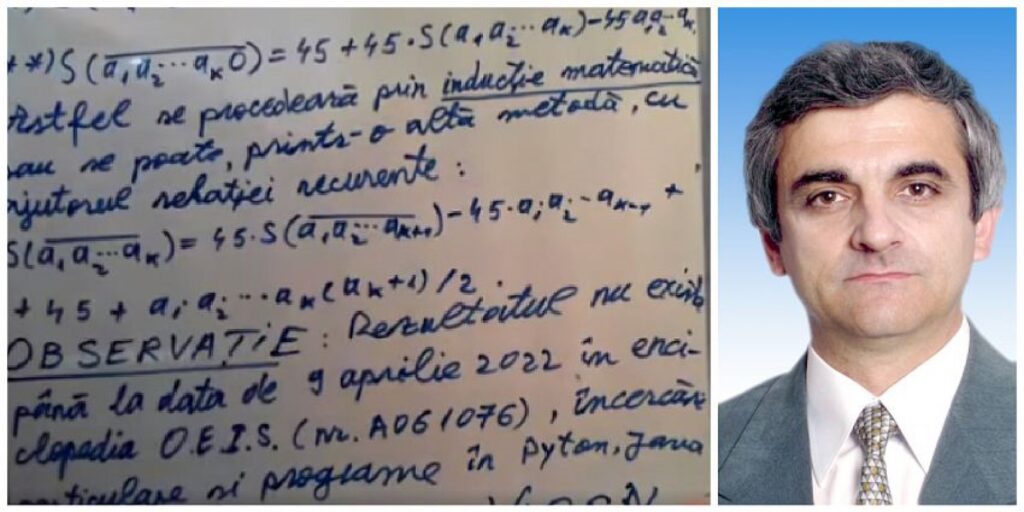 **) S(a₁a₂...aₖ0) = 45 + 45·S(a₁a₂...aₖ) - 45a₁a₂...aₖ,
Astfel se procedează prin inducție matematică
sau se poate, printr-o altă metodă, cu
ajutorul relației recurente:
S(a₁a₂...aₖ) = 45·S(a₁a₂...aₖ₋₁) - 45·a₁a₂...aₖ₋₁ +
+ 45 + a₁a₂...aₖ(aₖ+1)/2.
OBSERVAȚIE: Rezultatul nu există
până la data de 9 aprilie 2022 în enci-
clopedia O.E.I.S. (nr. A061076), încercări
particulare și programe în Pyton, Java